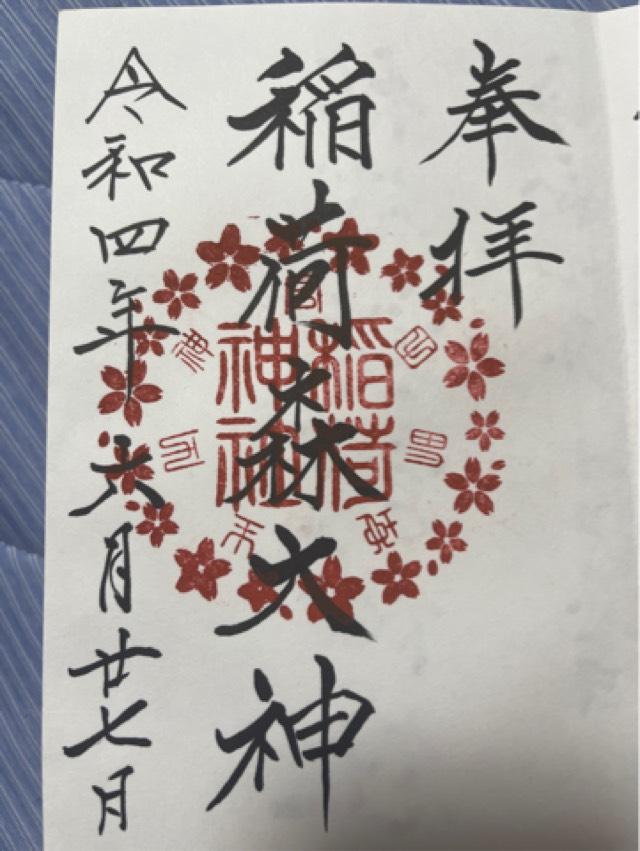 奉拝
稲荷森大神
令和四年六月廿七日
稲荷
神社